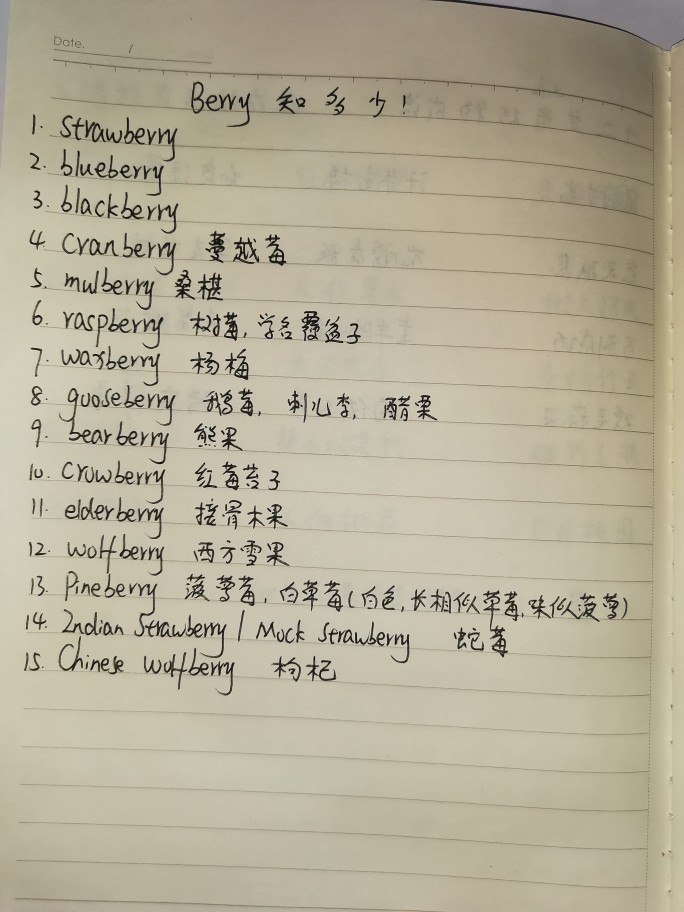 Date. /
Berry 知多少!
1. Strawberry
2. blueberry
3. blackberry
4. Cranberry 蔓越莓
5. mulberry 桑椹
6. raspberry 树莓, 学名覆盆子
7. waxberry 杨梅
8. gooseberry 鹅莓, 刺儿李, 醋栗
9. bearberry 熊果
10. Crowberry 红莓苔子
11. elderberry 接骨木果
12. wolfberry 西方雪果
13. Pineberry 菠萝莓, 白草莓(白色, 长相似草莓, 味似菠萝)
14. Indian Strawberry / Mock Strawberry 蛇莓
15. Chinese wolfberry 枸杞